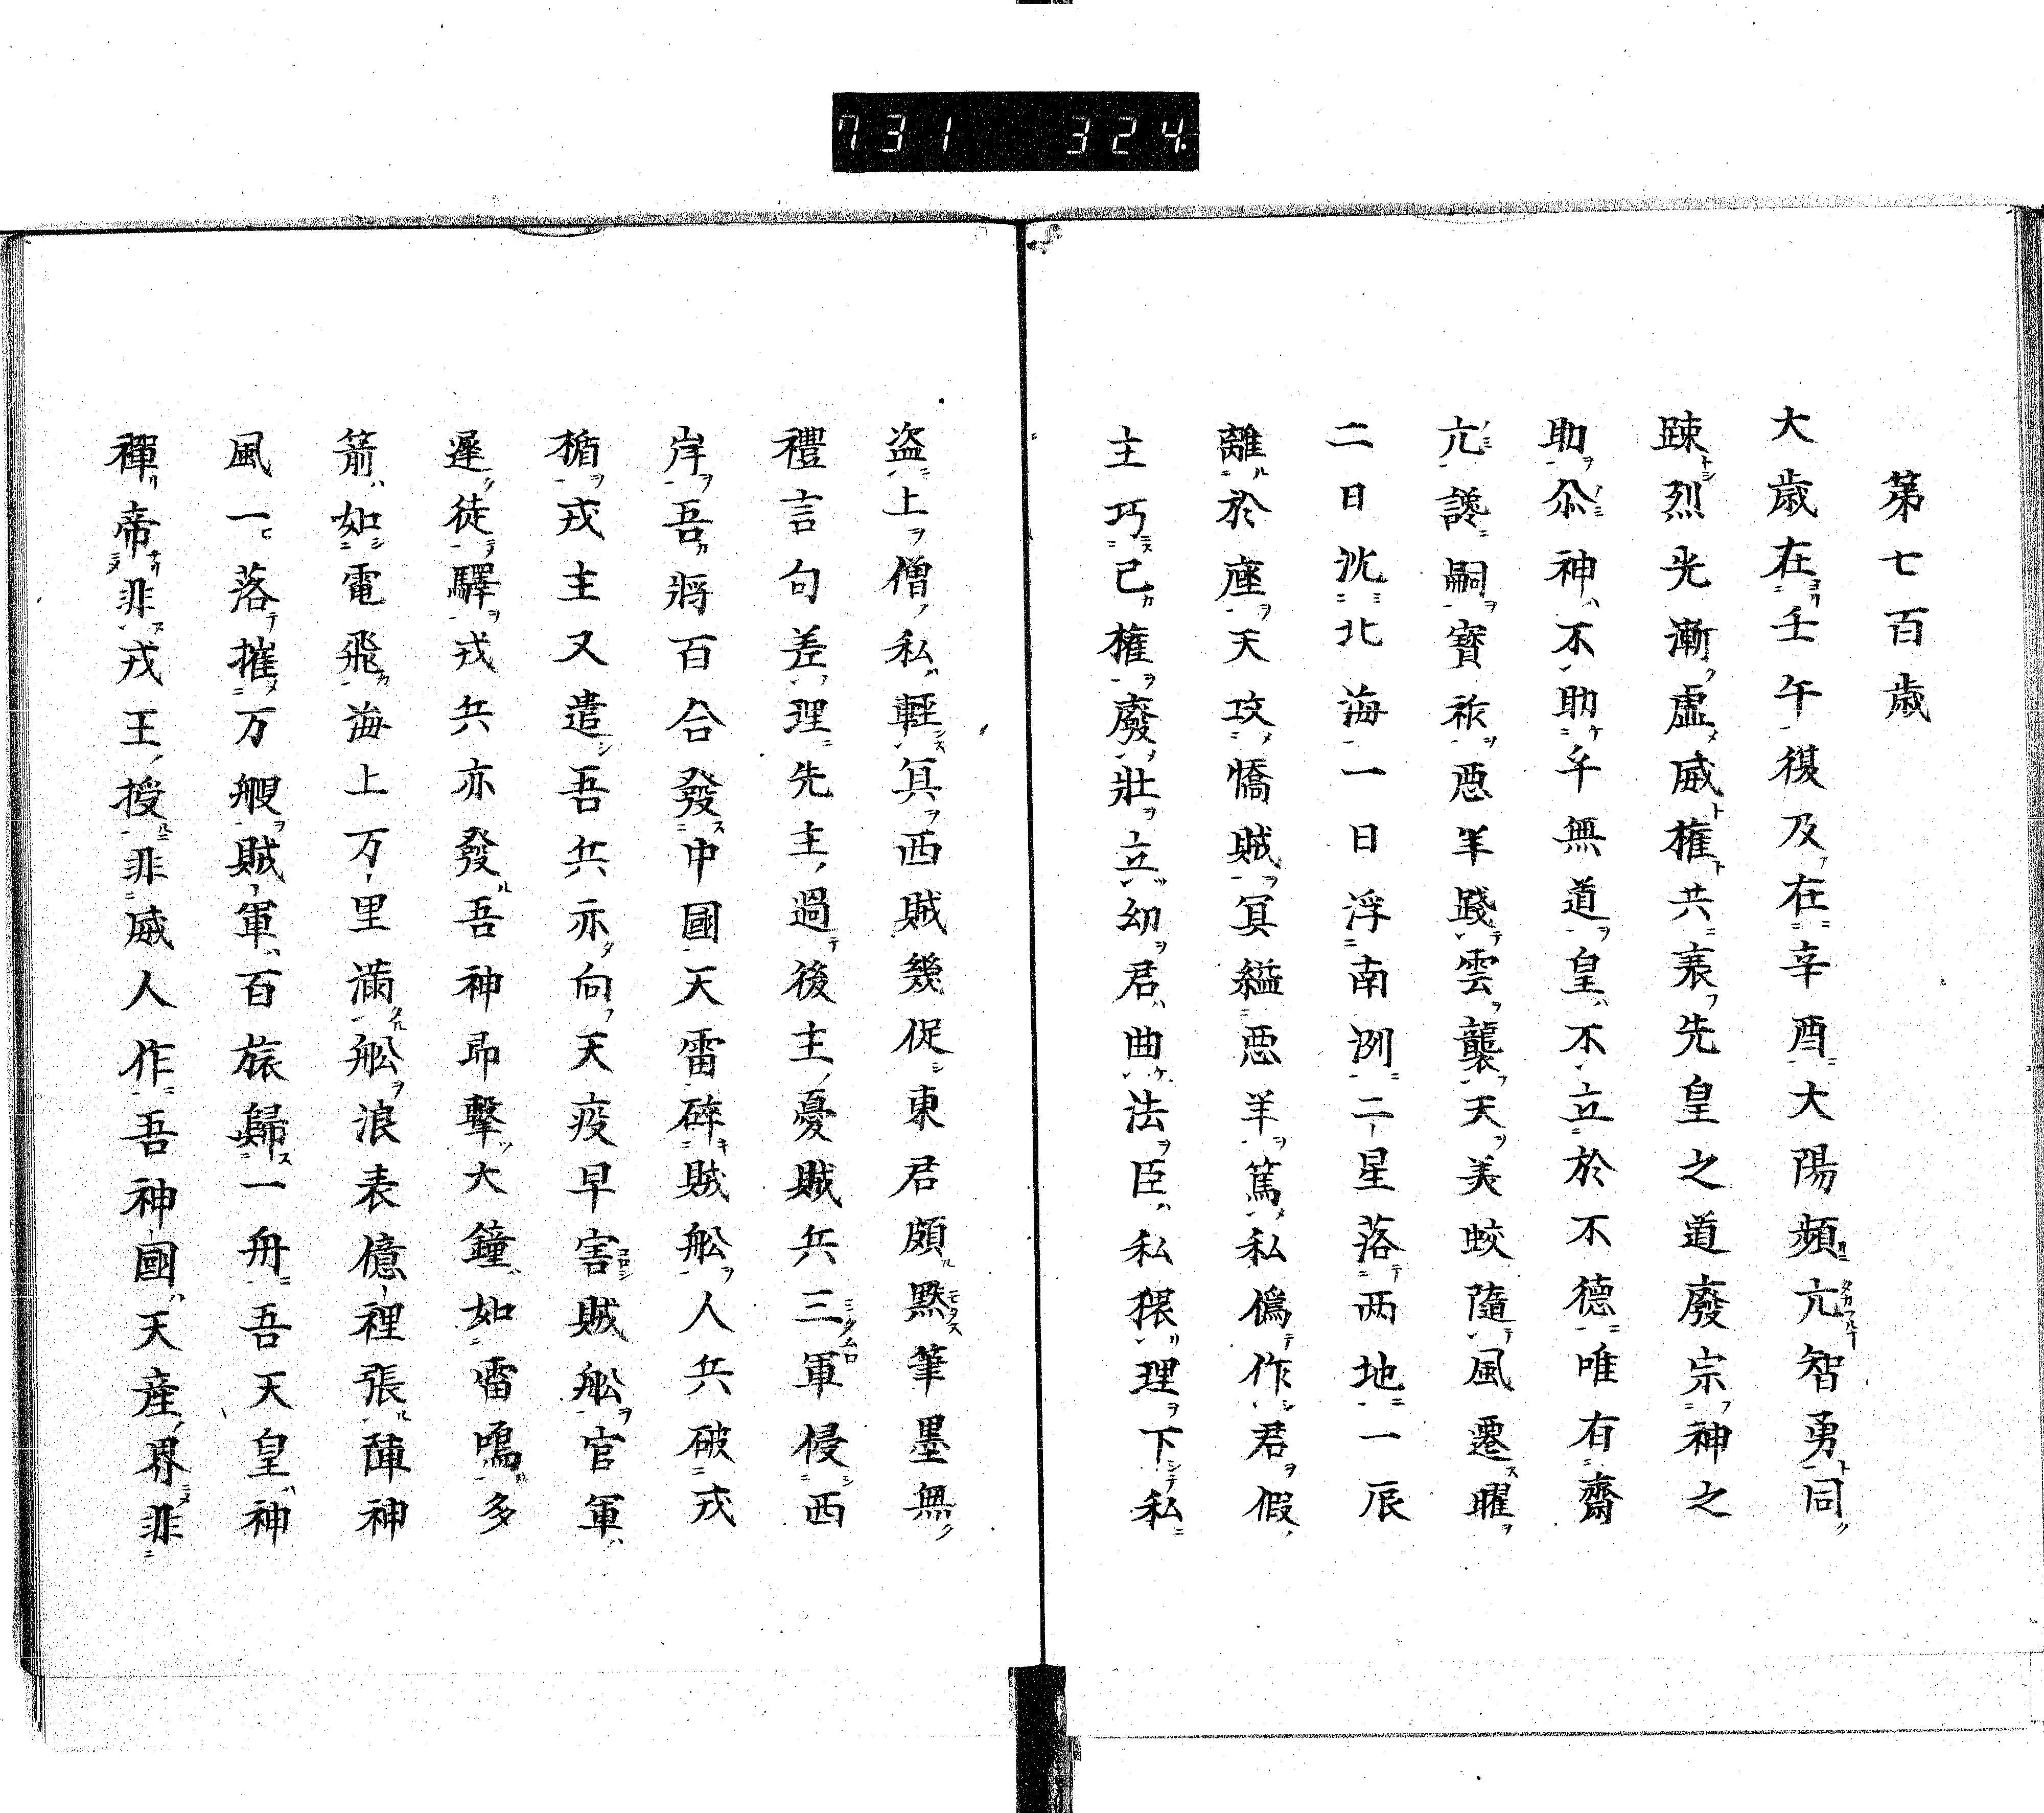 731 324
第七百歳
大歳在壬午復及在辛酉大陽頻亢智勇同
踈烈光漸虚威権共衰先皇之道廢宗神之
助尒神不助午無道皇不立於不德唯有齋
亢讒嗣寳祚悪羊踐雲襲天美蛟隨風遷曜
二日沈北海一日浮南洌二星落両地一辰
離於座天攻憍賊冥縊悪羊篤私偽作君假
主巧己権廢壯立幼君曲法臣私猥理下私
盗上僧私輕冥西賊幾促東君頗黙筆墨無
禮言句差理先主過後主憂賊兵三軍侵西
岸吾將百合發中國天雷碎賊舩人兵破戎
楯戎主又遣吾兵亦向天疫早害賊舩官軍
遲徒驛戎兵亦發吾神昂擊大鐘如雷鳴多
箭如電飛海上万里滿舩浪表億裡張陣神
風一落摧万艘賊軍百旅歸一舟吾天皇神
禪帝非戎王授非威人作吾神國天産界非